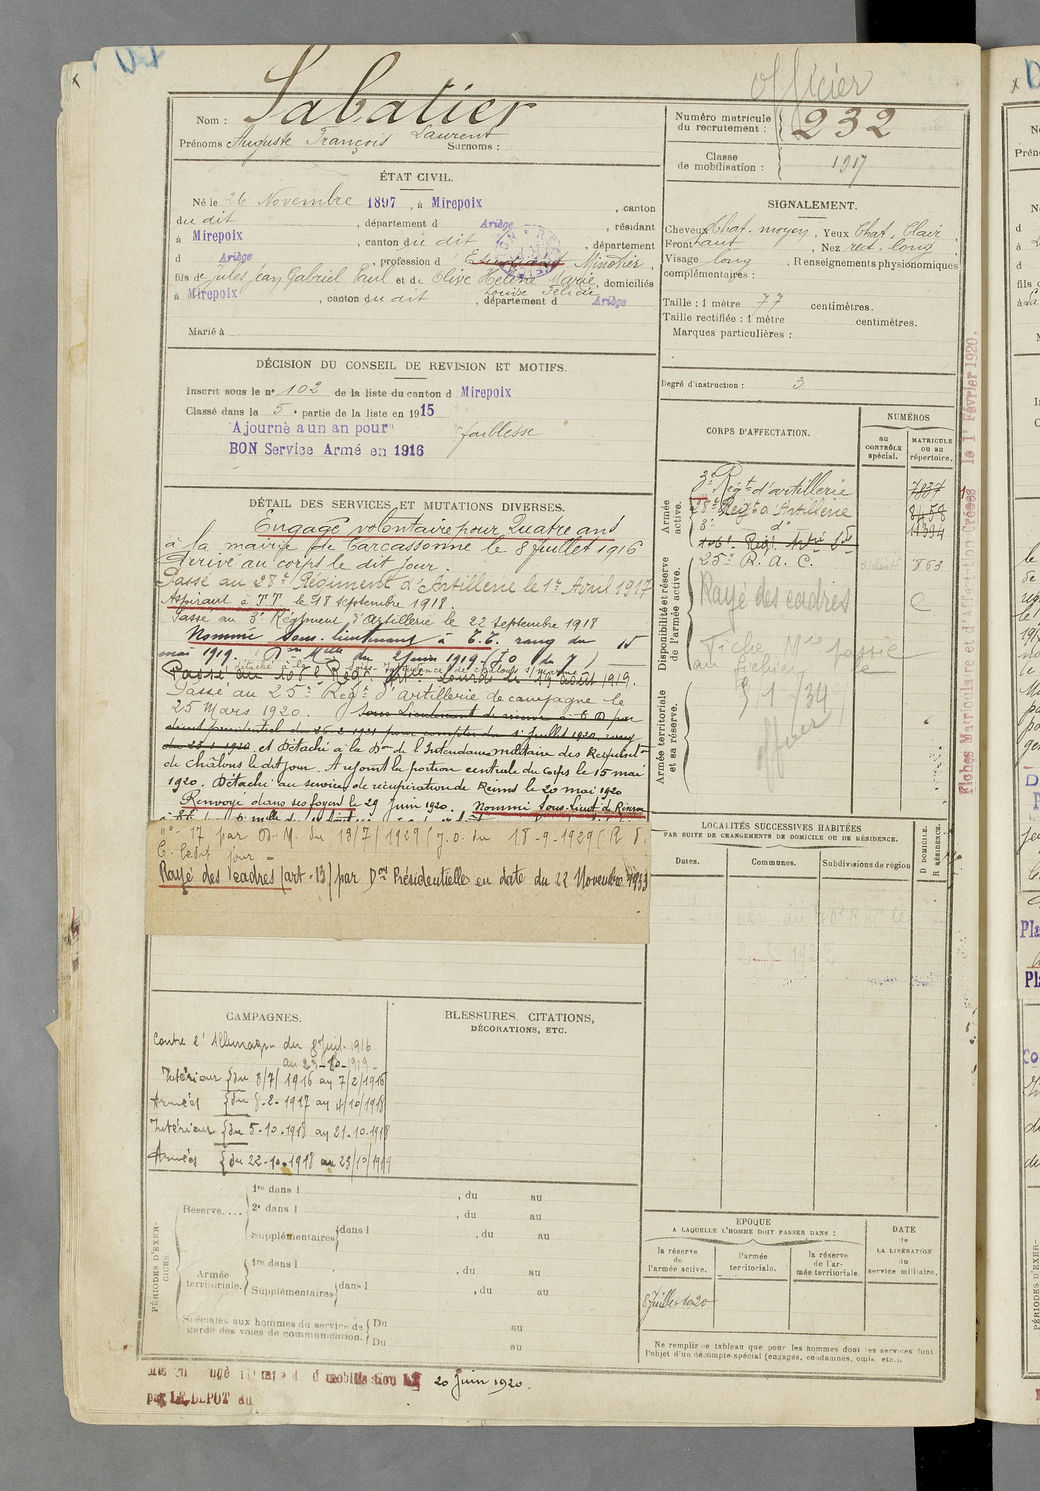 officier
Nom : Sabatier
Prénoms Auguste François Laurent Surnoms :
Numéro matricule du recrutement : 232
Classe de mobilisation : 1917
ÉTAT CIVIL.
Né le 26 Novembre 1897, à Mirepoix, canton
du dit, département d Ariège, résidant
à Mirepoix, canton du dit, département
d Ariège, profession d Etudiant Minotier,
fils de Jules Jean Gabriel Paul et de Olive Hélène Marie, domiciliés
Louise Félicie
à Mirepoix, canton du dit, département d Ariège
Marié à
SIGNALEMENT.
Cheveux Chat. moyen, Yeux Chat. Clair,
Front haut, Nez rect. long
Visage long, Renseignements physionomiques
complémentaires :
Taille : 1 mètre 77 centimètres.
Taille rectifiée : 1 mètre centimètres.
Marques particulières :
Degré d'instruction : 3
DÉCISION DU CONSEIL DE REVISION ET MOTIFS.
Inscrit sous le n° 102 de la liste du canton d Mirepoix
Classé dans la 5e partie de la liste en 1915
"Ajourné a un an pour" "faiblesse
BON Service Armé en 1916
CORPS D'AFFECTATION.
NUMÉROS
au CONTRÔLE spécial.
MATRICULE ou au répertoire.
Armée active.
3e Régt d'artillerie 7837
28e Regt d'Artillerie 8458
3e do 11394
Disponibilité et réserve de l'armée active.
25e R. A. C. 863
Rayé des cadres
Fiche passée
au fichier le
Armée territoriale et sa réserve.
Fiches Matriculaire et d'Affectation Créées le 1er Février 1920.
DÉTAIL DES SERVICES ET MUTATIONS DIVERSES.
Engagé volontaire pour Quatre ans
à la mairie de Carcassonne le 8 Juillet 1916
Arrivé au corps le dit jour.
Passé au 28e Régiment d'Artillerie le 1er Avril 1917
Aspirant à T.T. le 18 septembre 1918.
Passé au 3e Régiment d'Artillerie le 22 Septembre 1918
Nommé Sous-lieutenant à T.T. rang du 15
mai 1919. Don Mlle du 2 juin 1919 (J.O. du 7)
Passé au Régt Artie Lourde le 19 août 1919.
Passé au 25e Régt d'Artillerie de campagne le
25 Mars 1920. Sous Lieutenant de réserve à T.D. par
décret présidentiel du
et Détaché à la Don de l'Intendance militaire des Requisitons
de Châlons le dit jour. A rejoint la portion centrale du Corps le 15 mai
1920. Détaché au service de récupération de Reims le 20 mai 1920
Renvoyé dans ses foyers le 29 Juin 1920. Nommé Sous-Lieut de Réserve
17 par D. M. du 13/7/1929 (J.O. du 18-9-1929 (R.
Rayé des Cadres (art. 13) par Don Présidentielle en date du 22 Novembre 1933
LOCALITÉS SUCCESSIVES HABITÉES
PAR SUITE DE CHANGEMENTS DE DOMICILE OU DE RÉSIDENCE.
Dates. Communes. Subdivisions de région D DOMICILE. R RÉSIDENCE.
CAMPAGNES.
Contre l'Allemagne du 8 Juil. 1916
au 23-10-1919
Intérieur du 8/7/1916 au 7/2/1916
Armées du 8-2-1917 au 4/10/1918
Intérieur du 5-10-1918 au 21-10-1918
Armées du 22-10-1918 au 23/10/1919
BLESSURES, CITATIONS,
DÉCORATIONS, ETC.
PÉRIODES D'EXERCICES.
Réserve.... 1re dans l , du au
2e dans l , du au
Supplémentaires dans l , du au
Armée territoriale. 1re dans l , du au
Supplémentaires dans l , du au
Spéciales aux hommes du service de garde des voies de communication. Du au
Du au
EPOQUE
A LAQUELLE L'HOMME DOIT PASSER DANS :
DATE de LA LIBÉRATION du service militaire.
la réserve de l'armée active. l'armée territoriale. la réserve de l'armée territoriale.
8 Juillet 1920
Ne remplir ce tableau que pour les hommes dont les services font
l'objet d'un décompte spécial (engagés, condamnés, omis, etc.).
20 Juin 1920.
par LE DEPOT du